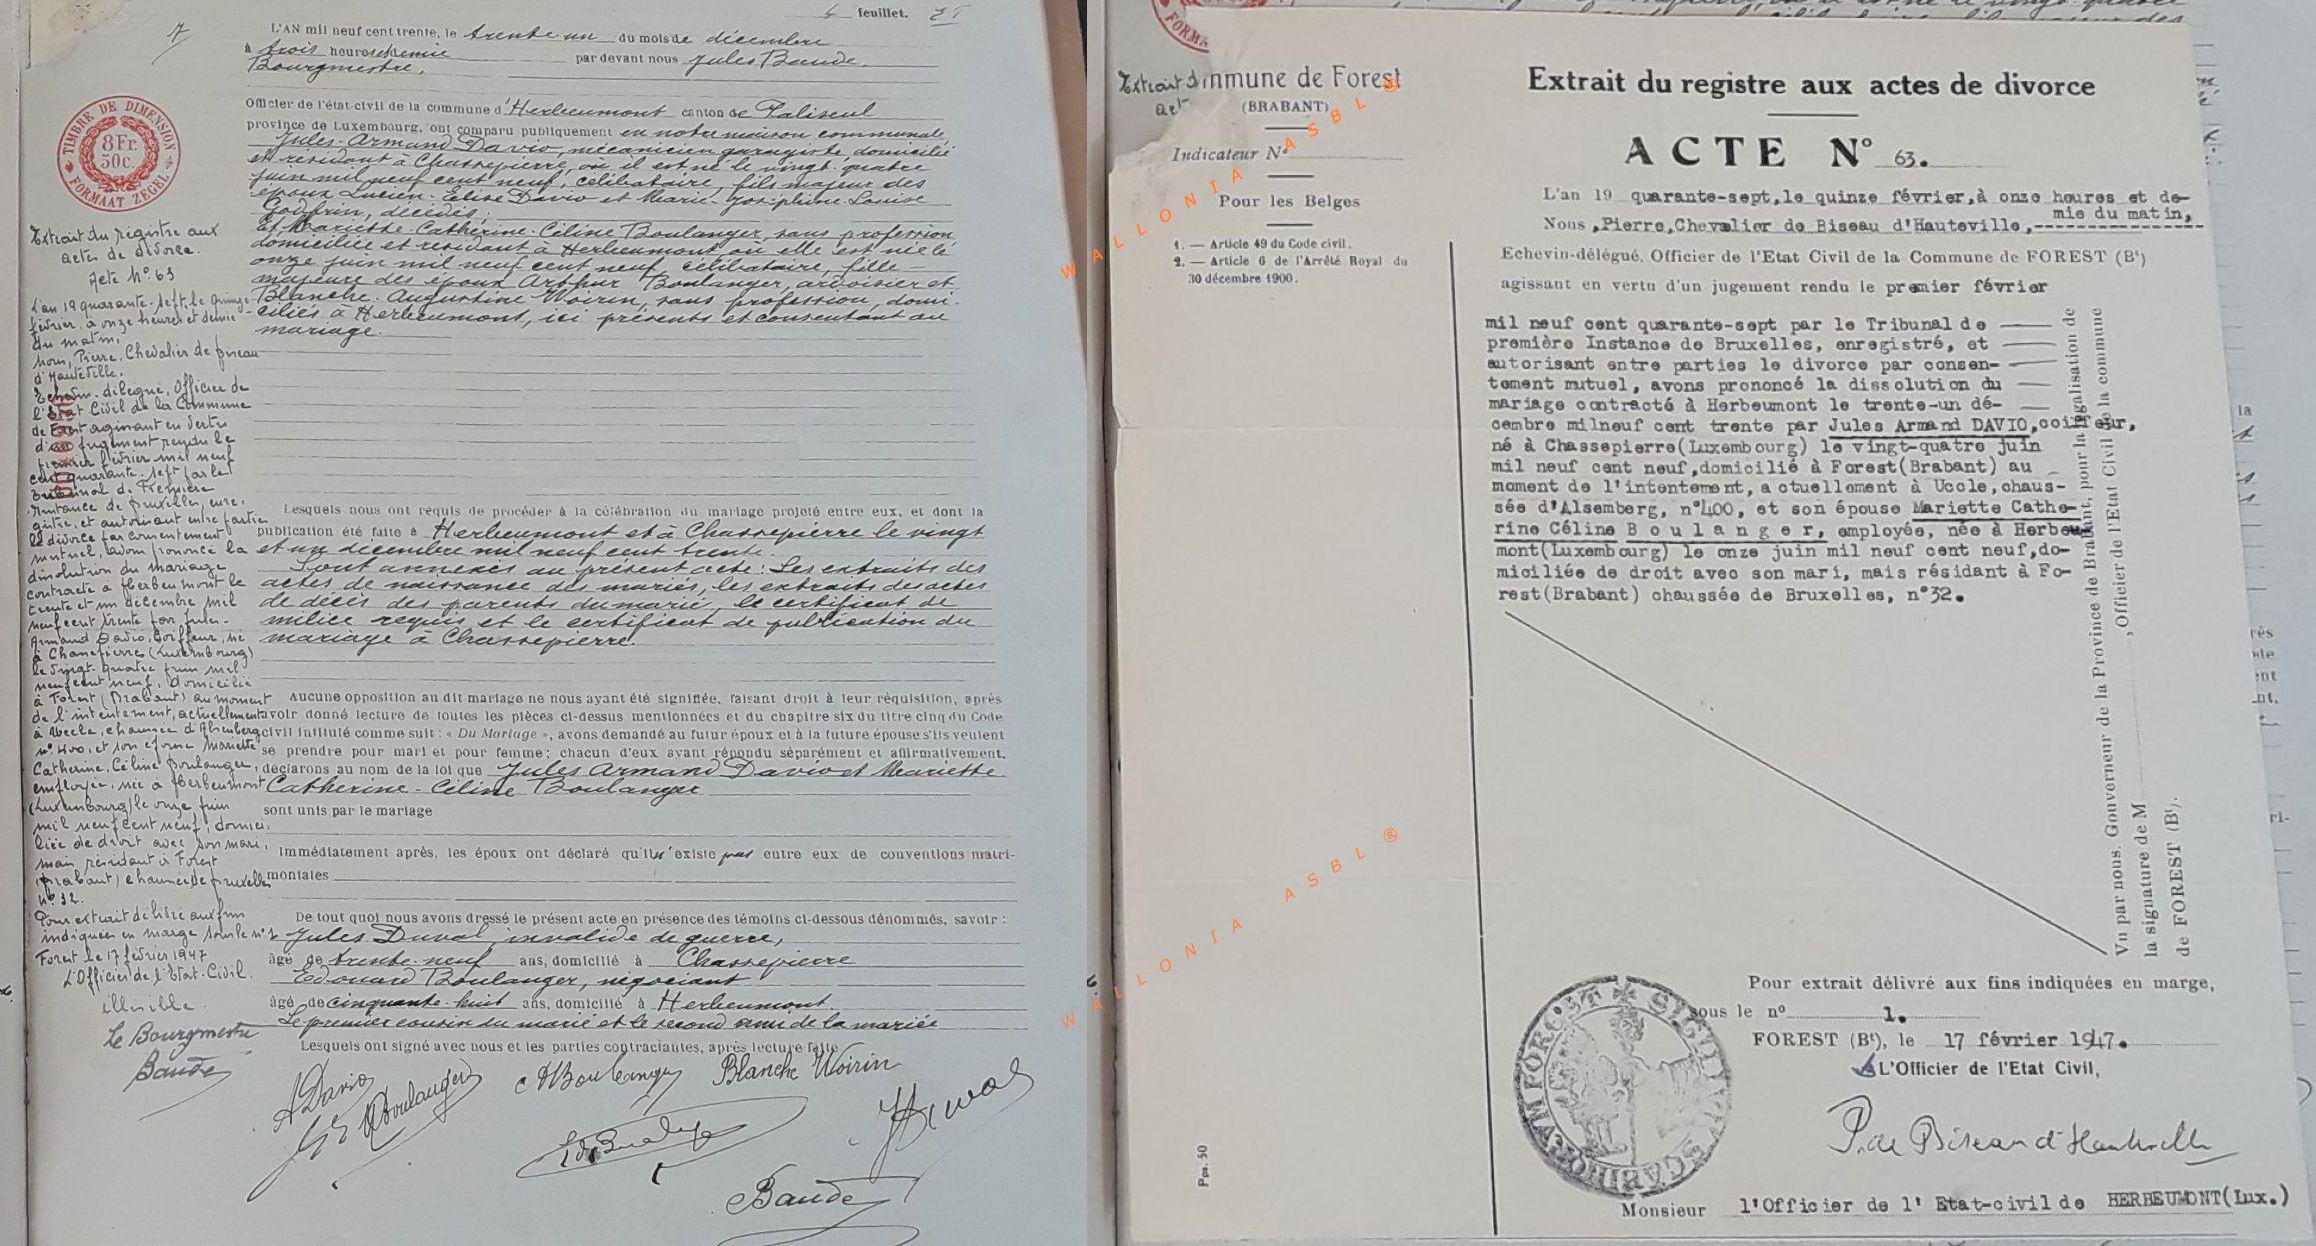 feuillet.
7
L'AN mil neuf cent trente, le trente un du mois de décembre
à trois heures et demie par devant nous Jules Baude,
Bourgmestre.
Officier de l'état-civil de la commune d'Herbeumont canton de Paliseul
province de Luxembourg, ont comparu publiquement en notre maison communale,
Jules-Armand Davio, mécanicien garagiste, domicilié
et résidant à Chassepierre, où il est né le vingt-quatre
juin mil neuf cent neuf, célibataire, fils majeur des
époux Lucien-Elise Davio et Marie-Joséphine-Louise
Godfrin, décédés;
Et Mariette-Catherine-Céline Boulanger, sans profession
domiciliée et résidant à Herbeumont où elle est née le
onze juin mil neuf cent neuf, célibataire, fille
majeure des époux Arthur Boulanger, ardoisier et
Blanche-Augustine Woirin, sans profession, domi-
ciliés à Herbeumont, ici présents et consentant au
mariage.
Lesquels nous ont requis de procéder à la célébration du mariage projeté entre eux, et dont la
publication été faite à Herbeumont et à Chassepierre le vingt
et un décembre mil neuf cent trente.
Sont annexés au présent acte: Les extraits des
actes de naissance des mariés, les extraits des actes
de décès des parents du marié, le certificat de
milice requis et le certificat de publication du
mariage à Chassepierre.
Aucune opposition au dit mariage ne nous ayant été signifiée, faisant droit à leur réquisition, après
avoir donné lecture de toutes les pièces ci-dessus mentionnées et du chapitre six du titre cinq du Code
civil intitulé comme suit : « Du Mariage », avons demandé au futur époux et à la future épouse s'ils veulent
se prendre pour mari et pour femme; chacun d'eux ayant répondu séparément et affirmativement,
déclarons au nom de la loi que Jules Armand Davio et Mariette
Catherine-Céline Boulanger
sont unis par le mariage
Immédiatement après, les époux ont déclaré qu'il n'existe pas entre eux de conventions matri-
moniales
De tout quoi nous avons dressé le présent acte en présence des témoins ci-dessous dénommés, savoir :
Jules Duval, invalide de guerre,
âgé de trente-neuf ans, domicilié à Chassepierre
Edouard Boulanger, négociant
âgé de cinquante-huit ans, domicilié à Herbeumont
Le premier cousin du marié et le second ami de la mariée
Lesquels ont signé avec nous et les parties contractantes, après lecture faite
A Davio
Boulanger
Blanche Woirin
Baude
TIMBRE DE DIMENSION
8 Fr.
50c.
FORMAAT ZEGEL
Extrait du registre aux
actes de divorce.
Acte N° 63
L'an 19 quarante-sept, le quinze
février, à onze heures et demie
du matin,
Nous, Pierre, Chevalier de Biseau
d'Hauteville.
Echevin-délégué, Officier de
l'Etat Civil de la Commune
de Forest agissant en vertu
d'un jugement rendu le
premier février mil neuf
cent quarante-sept par le
Tribunal de Première
Instance de Bruxelles, enre-
gistré, et autorisant entre parties
le divorce par consentement
mutuel, avons prononcé la
dissolution du mariage
contracté à Herbeumont le
trente et un décembre mil
neuf cent trente par Jules-
Armand Davio, coiffeur, né
à Chassepierre (Luxembourg)
le vingt-quatre juin mil
neuf cent neuf, domicilié
à Forest (Brabant) au moment
de l'intentement, actuellement
à Uccle, chaussée d'Alsemberg
n° 400, et son épouse Mariette
Catherine, Céline Boulanger,
employée, née à Herbeumont
(Luxembourg) le onze juin
mil neuf cent neuf, domici-
liée de droit avec son mari,
mais résidant à Forest
(Brabant) chaussée de Bruxelles
n° 32.
Pour extrait délivré aux fins
indiquées en marge sous le n° 1
Forest le 17 février 1947
L'Officier de l'Etat-Civil.
illisible.
Le Bourgmestre
Baude
Extrait d
act
mmune de Forest
(BRABANT)
Indicateur N°
Pour les Belges
1. — Article 49 du Code civil.
2. — Article 6 de l'Arrêté Royal du
30 décembre 1900.
Ppr. 50
Extrait du registre aux actes de divorce
ACTE N° 63.
L'an 19 quarante-sept, le quinze février, à onze heures et de-
mie du matin,
Nous, Pierre, Chevalier de Biseau d'Hauteville,
Echevin-délégué, Officier de l'Etat Civil de la Commune de FOREST (Bt)
agissant en vertu d'un jugement rendu le premier février
mil neuf cent quarante-sept par le Tribunal de
première Instance de Bruxelles, enregistré, et
autorisant entre parties le divorce par consen-
tement mutuel, avons prononcé la dissolution du
mariage contracté à Herbeumont le trente-un dé-
cembre milneuf cent trente par Jules Armand DAVIO, coiffeur,
né à Chassepierre(Luxembourg) le vingt-quatre juin
mil neuf cent neuf, domicilié à Forest(Brabant) au
moment de l'intentement, actuellement à Uccle, chaus-
sée d'Alsemberg, n°400, et son épouse Mariette Cathe-
rine Céline Boulanger, employée, née à Herbeu-
mont(Luxembourg) le onze juin mil neuf cent neuf, do-
miciliée de droit avec son mari, mais résidant à Fo-
rest(Brabant) chaussée de Bruxelles, n°32.
Vu par nous, Gouverneur de la Province de Brabant, pour la légalisation de
la signature de M , Officier de l'Etat Civil de la commune
de FOREST (Bt).
Pour extrait délivré aux fins indiquées en marge,
sous le n° 1.
FOREST (Bt), le 17 février 1947.
L'Officier de l'Etat Civil,
P. de Biseau d'Hauteville
Monsieur l'Officier de l'Etat-civil de HERBEUMONT(Lux.)
WALLONIA ASBL ®
WALLONIA ASBL ®